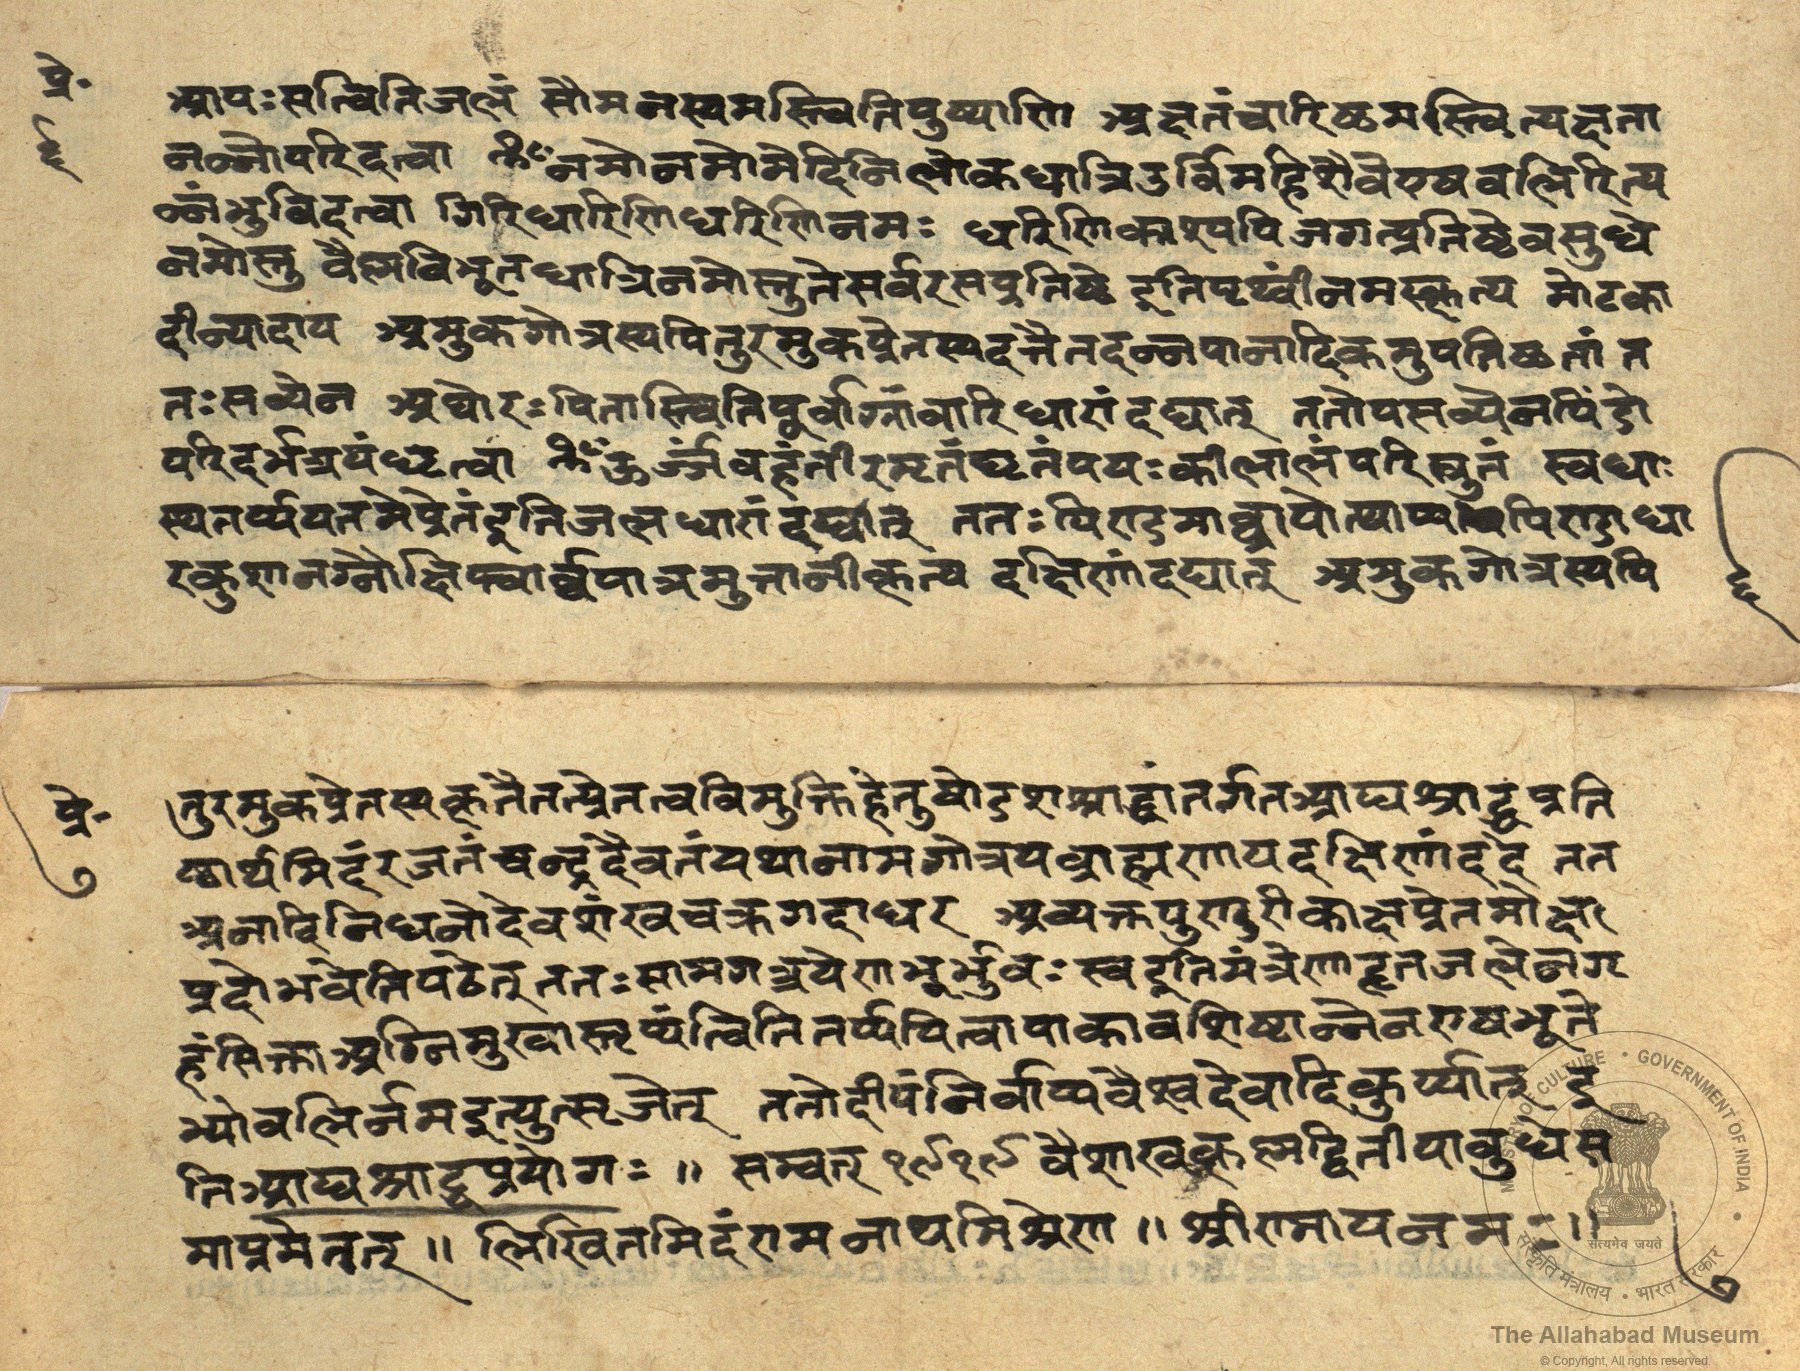 प्रे॰
६
आपः सन्त्वितिजलं सौमनस्यमस्त्वितिपुष्पाणि अक्षतंचारिष्टमस्त्वित्यक्षता
नग्नौपरिदत्वा ॐनमोनमोमेदिनिलोकधात्रिउर्विमहिशैवेएषबलिरित्य
न्नंभुविदत्वा गिरिधारिणिधरिणिनमः धरिणिकाश्यपिजगत्प्रतिष्ठेवसुधे
नमोस्तु वैष्णविभूतधात्रिनमोस्तुतेसर्वरसप्रतिष्ठे इतिपृथ्वींनमस्कृत्य मोटका
दीन्यादाय अमुकगोत्रस्यपितुरमुकप्रेतस्यदत्तैतदन्नपानादिकमुपतिष्ठतां त
तःसव्येन अघोरः पितास्त्वितिपूर्वाग्रांवारिधारांदद्यात् ततोपसव्येनपिंडो
परिदर्भत्रयंधृत्वा ॐऊर्ज्जंवहंतीरमृतंघृतंपयःकीलालंपरिस्त्रुतं स्वधा
स्यतर्प्पयतमेप्रेतंइतिजलधारांदद्यात् ततः पिण्डमाघ्रायोत्थाप्य पिण्डाधा
रकुशानग्नौक्षिप्त्वार्घपात्रमुत्तानीकृत्य दक्षिणांदद्यात् अमुकगोत्रस्यपि
६
प्रे॰
७
तुरमुकप्रेतस्यकृतैतत्प्रेतत्वविमुक्तिहेतुषोडशश्राद्धांतर्गतआद्यश्राद्धप्रति
ष्ठार्थमिदंरजतंचन्द्रदैवतंयथानामगोत्रायब्राह्मणायदक्षिणांददे तत
अनादिनिधनोदेवशंखचक्रगदाधर अव्यक्तपुण्डरीकाक्षप्रेतमोक्ष
प्रदोभवेतिपठेत् ततः सामगश्चयेणभूर्भुवः स्वइतिमंत्रेणाहृतजलेनगृ
हंसिक्ताअग्निमुखास्तृप्यंत्वितितर्प्पयित्वापाकावशिष्टान्नेनएषभूते
भ्योबलिर्नमइत्युत्सृजेत् ततोदीपंनिर्वाप्यवैश्वदेवादिकुर्य्यात् इ
तिआद्यश्राद्धप्रयोगः ॥ सम्वत् १९१९ वैशाखकृष्णद्वितीयाबुधेस
माप्तमेतत् ॥ लिखितमिदंरामनाथमिश्रेण ॥ श्रीरामायनमः॥
७
MINISTRY OF CULTURE • GOVERNMENT OF INDIA •
सत्यमेव जयते
संस्कृति मंत्रालय • भारत सरकार
The Allahabad Museum
© Copyright, All rights reserved